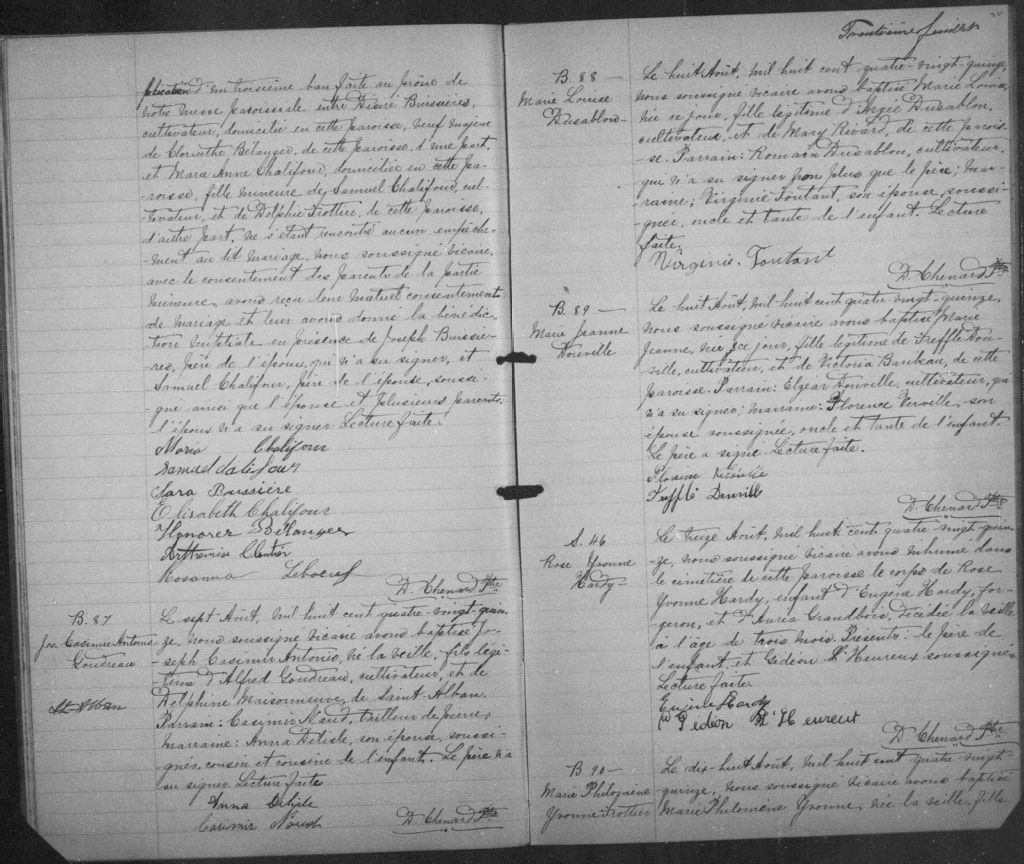 plication d'un troisième ban faite au prône de
notre messe paroissiale entre Buissières,
cultivateur, domicilié en cette paroisse, veuf majeur
de Clorinthe Bélanger, de cette paroisse, d'une part,
et Marie Anne Chalifour, domiciliée en cette pa-
roisse, fille mineure de Samuel Chalifour, cul-
tivateur, et de Delphie Trottier, de cette paroisse,
d'autre part, ne s'étant rencontré aucun empêche-
ment au dit mariage, nous soussigné vicaire,
avec le consentement des parents de la partie
mineure, avons reçu leur mutuel consentement
de mariage et leur avons donné la bénédic-
tion nuptiale en présence de Joseph Buissiè-
res, père de l'époux, qui n'a su signer, et
Samuel Chalifour, père de l'épouse, soussi-
gné ainsi que l'épouse et plusieurs parents.
l'époux n'a su signer. Lecture faite.
Maria Chalifour
Samuel Chalifour
Sara Bussière
Elisabeth Chalifour
Honorez Bélanger
Arthémise
Rosanna Leboeuf
D. Chenard Ptre
B. 87
Jos. Casimir Antonio
Goudreau
St. Alban
Le sept Août, mil huit cent quatre-vingt-quin-
ze, nous soussigné vicaire avons baptisé Jo-
seph Casimir Antonio, né la veille, fils légi-
time d'Alfred Goudreau, cultivateur, et de
Delphine Maisonneuve, de Saint-Alban.
Parrain: Casimir Naud, tailleur de pierre,
marraine: Anna Delisle, son épouse, soussi-
gnés, cousin et cousine de l'enfant. Le père n'a
su signer. Lecture faite
Anna Delisle
Casimir Naud
D. Chenard Ptre
Trentième feuillet
B. 88
Marie Louise
Dusablon
Le huit Août, mil huit cent quatre-vingt-quinze,
nous soussigné vicaire avons baptisé Marie Louise,
née ce jour, fille légitime d'Argée Dusablon,
cultivateur, et de Mary Rivard, de cette parois-
se. Parrain: Romain Dusablon, cultivateur,
qui n'a su signer non plus que le père; mar-
raine; Virginie Toutant, son épouse, soussi-
gnée, oncle et tante de l'enfant. Lecture
faite.
Virginie Toutant
D. Chenard Ptre
B. 89
Marie Jeanne
Douville
Le huit Août, mil huit cent quatre-vingt-quinze,
nous soussigné vicaire avons baptisé Marie
Jeanne, née ce jour, fille légitime de Trefflé Dou-
ville, cultivateur, et de Victoria Baribeau, de cette
paroisse. Parrain: Elzéar Douville, cultivateur, qui
n'a su signer; marraine: Florence Verville, son
épouse soussignée, oncle et tante de l'enfant.
Le père a signé. Lecture faite.
Florence
Trefflé Douville
D. Chenard Ptre
S. 46
Rose Yvonne
Hardy
Le treize Août, mil huit cent quatre-vingt-quin-
ze, nous soussigné vicaire avons inhumé dans
le cimetière de cette paroisse le corps de Rose
Yvonne Hardy, enfant d'Eugène Hardy, for-
geron, et d'Auréa Grandbois, décédée la veille
à l'âge de trois mois. Présents: le père de
l'enfant, et Gédéon L'Heureux soussignés
Lecture faite.
Eugène Hardy
Gédéon L'Heureux
D. Chenard Ptre
B. 90
Marie Philomène
Yvonne Trottier
Le dix-huit Août, mil huit cent quatre-vingt-
quinze, nous soussigné vicaire avons baptisé
Marie Philomène Yvonne, née la veille, fille